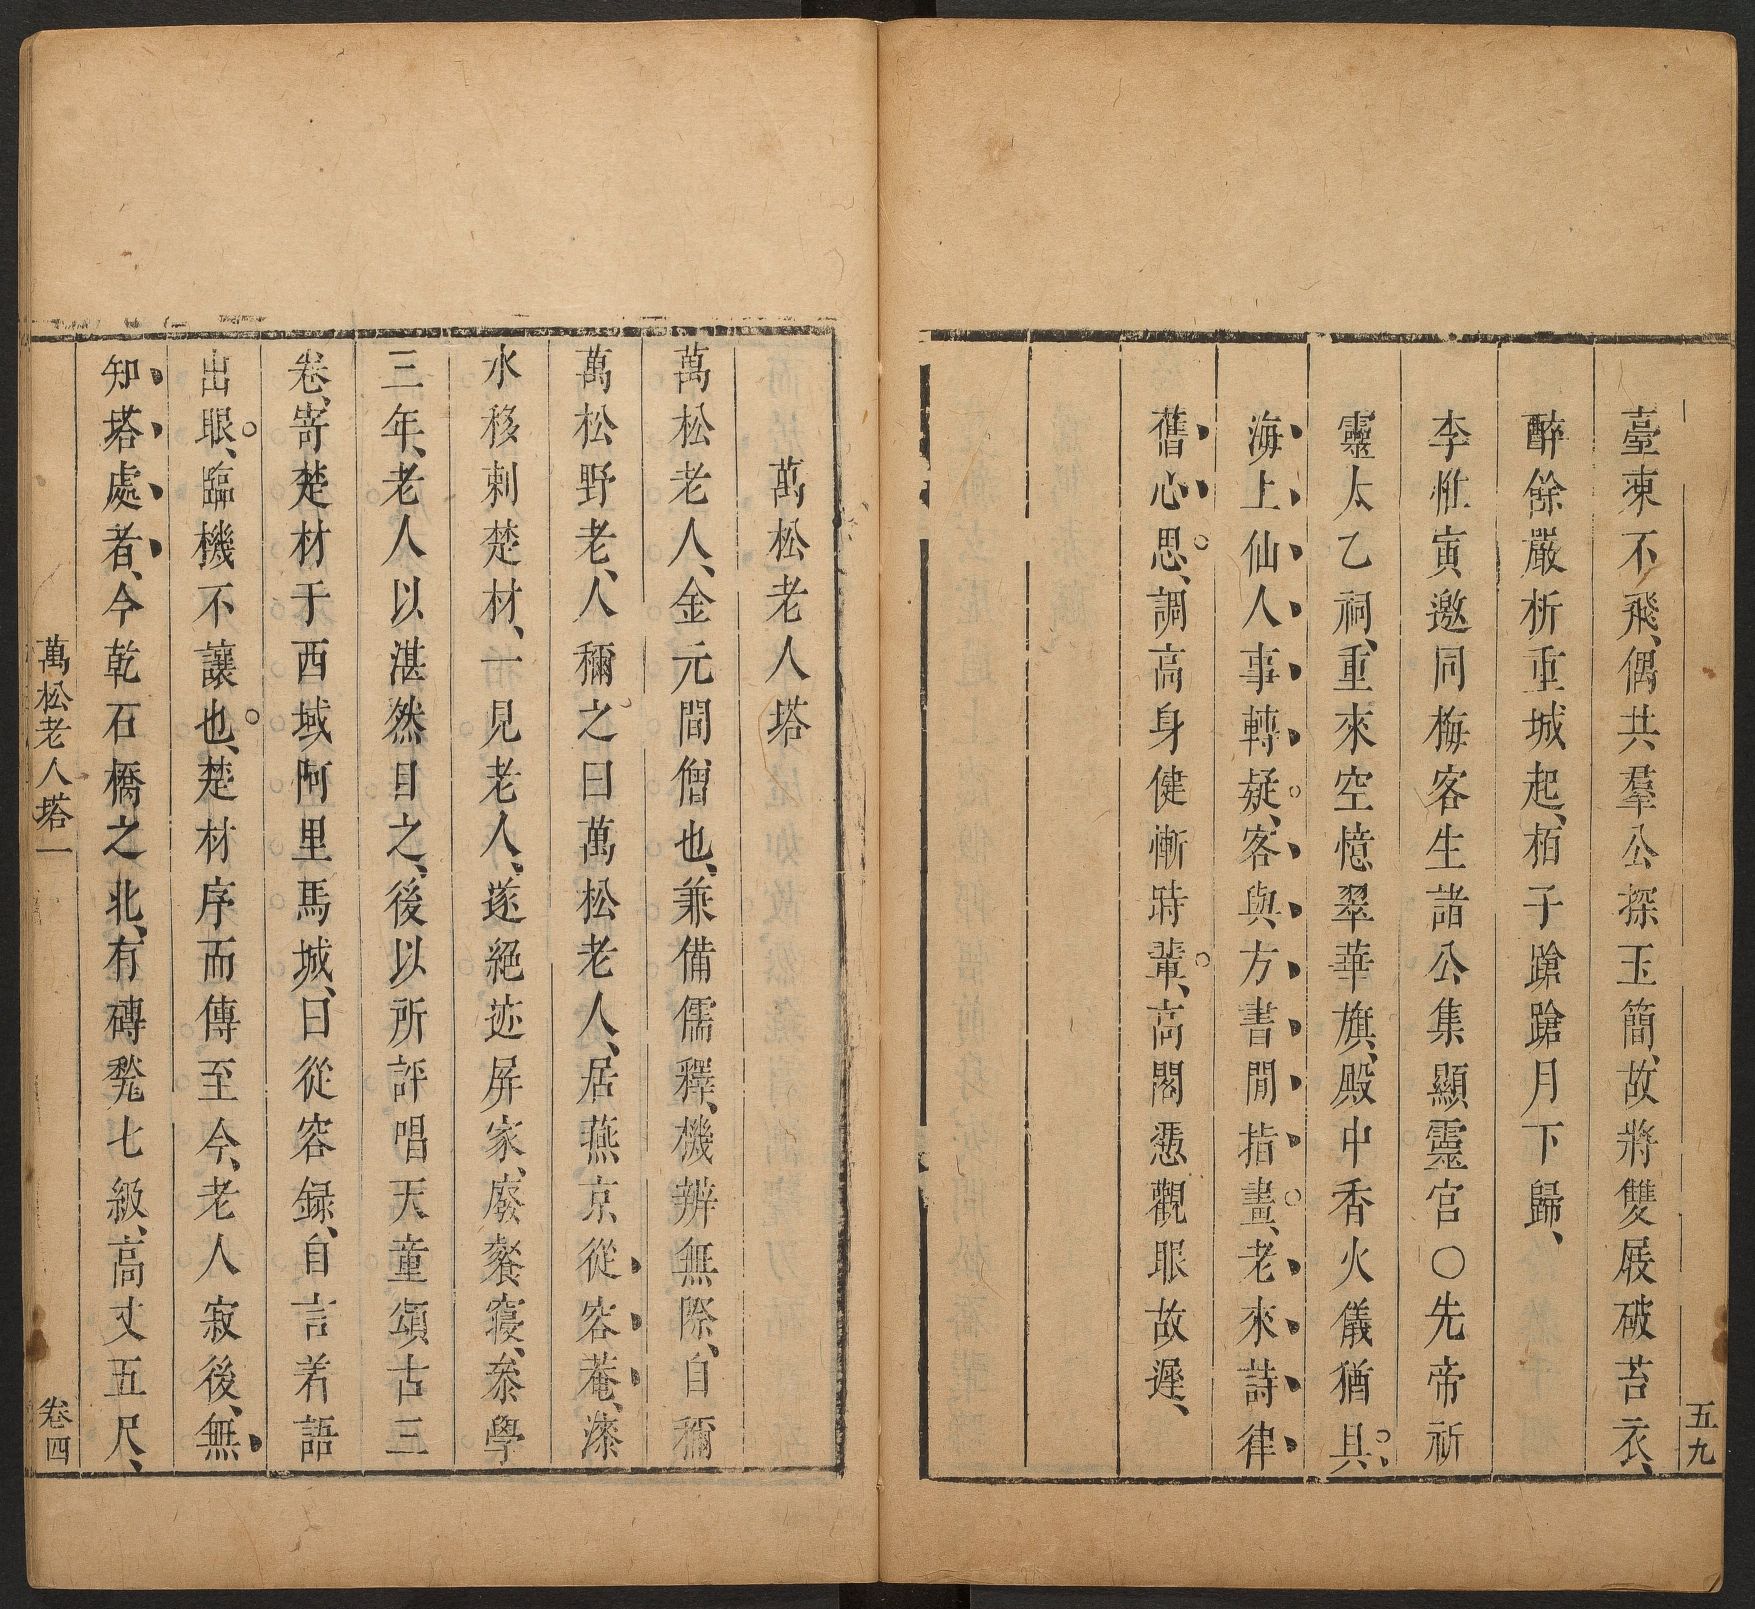 五九
臺東不飛、偶共羣公探玉簡、故將雙屐破苔衣、
醉餘嚴柝重城起、栢子蹌蹌月下歸、
李惟寅邀同梅客生諸公集顯靈宮○先帝祈
靈太乙祠、重來空憶翠華旗、殿中香火儀猶具、
海上仙人事轉疑、客與方書閒指畫、老來詩律
舊心思、調高身健慚時輩、高閣憑觀眼故遲、
萬松老人塔
萬松老人、金元間僧也、兼備儒釋、機辨無際、自稱
萬松野老、人稱之曰萬松老人、居燕京從容菴、漆
水移剌楚材、一見老人、遂絕迹屏家、廢餐寢、叅學
三年、老人以湛然目之、後以所評唱天童頌古三
卷、寄楚材于西域阿里馬城、曰從容録、自言着語
出眼、臨機不讓也、楚材序而傳至今、老人寂後、無
知塔處者、今乾石橋之北、有磚甃七級、高丈五尺、
萬松老人塔一 卷四